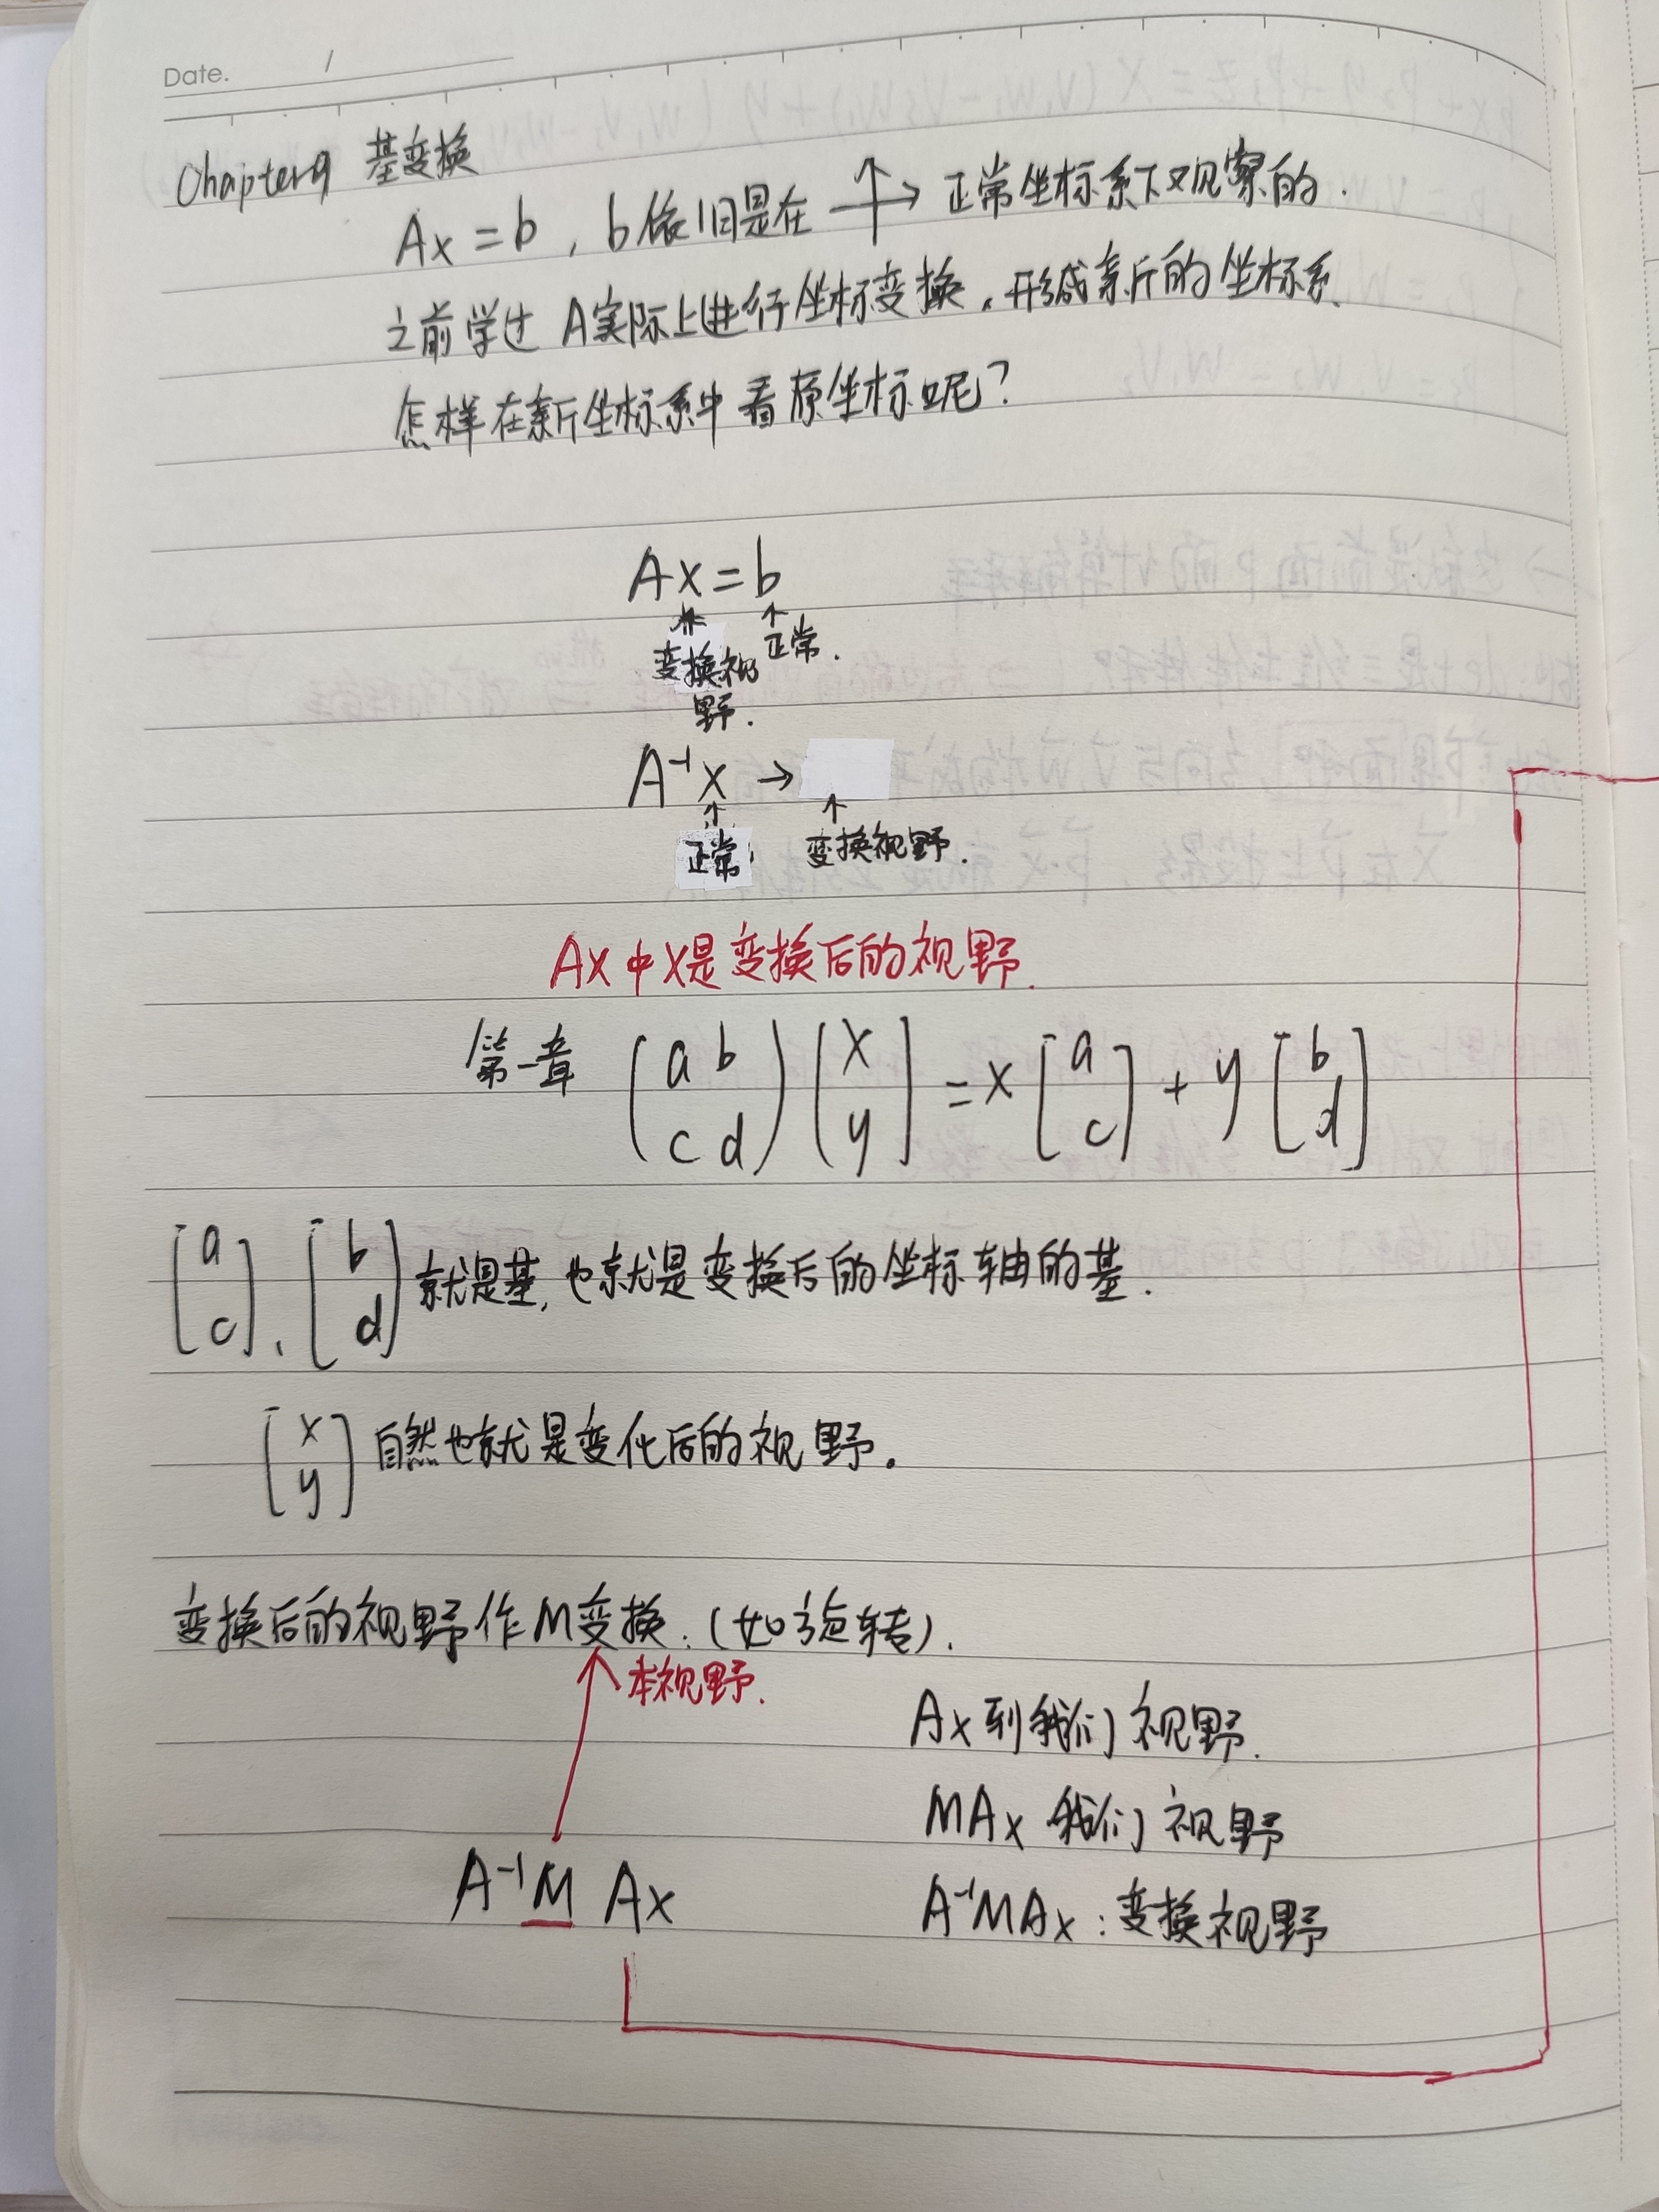 Date. /
Chapter9 基变换
Ax = b , b 依旧是在 正常坐标系下观察的.
之前学过 A实际上进行坐标变换,形成新的坐标系.
怎样在新坐标系中看原坐标呢?
Ax = b
正常.
变换视
野.
A⁻¹x →
正常 变换视野.
Ax中x是变换后的视野.
第一章 (a b
c d) [x
y] = x [a
c] + y [b
d]
[a
c]、[b
d] 就是基,也就是变换后的坐标轴的基.
[x
y] 自然也就是变化后的视野.
变换后的视野作M变换.(如旋转).
本视野.
Ax到我们视野.
MAx 我们视野
A⁻¹M Ax
A⁻¹MAx:变换视野